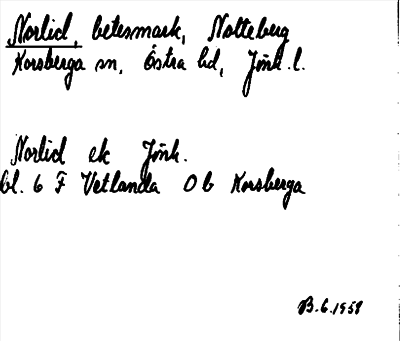 Norlid, betesmark, Notteberg
Korsberga sn, Östra hd, Jönk. l.
Norlid ek Jönk.
bl. 6 F Vetlanda 0 b Korsberga
B.G. 1958